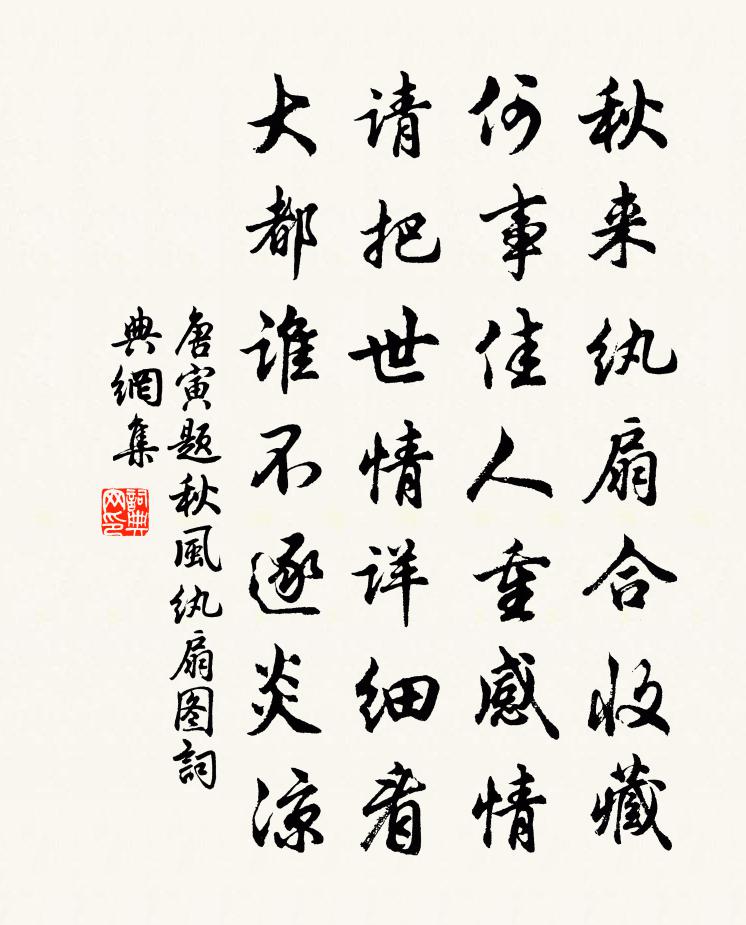 秋来纨扇合收藏
何事佳人重感情
请把世情详细看
大都谁不逐炎凉
唐寅题秋風纨扇图詞
典網集
詞典
网印